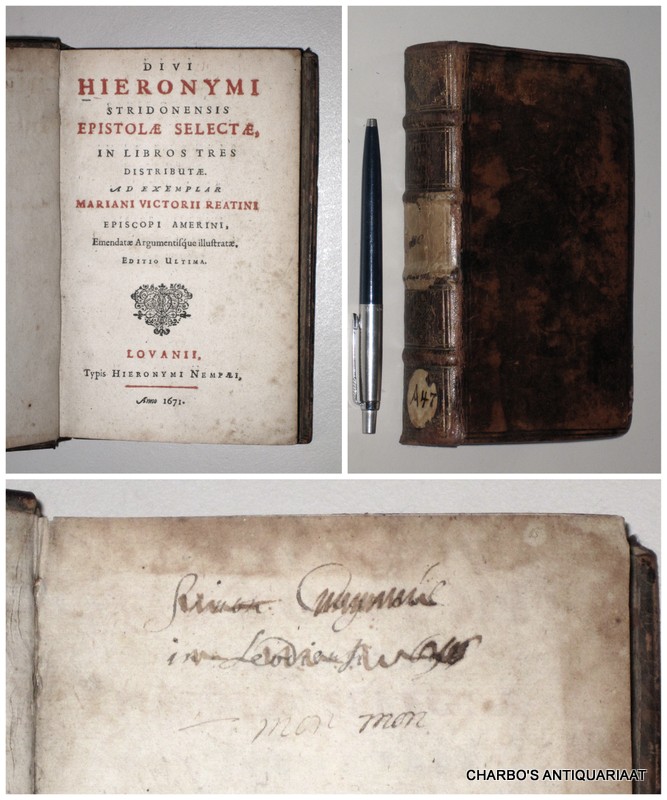 DIVI
HIERONYMI
STRIDONENSIS
EPISTOLÆ SELECTÆ,
IN LIBROS TRES
DISTRIBUTÆ.
AD EXEMPLAR
MARIANI VICTORII REATINI
EPISCOPI AMERINI,
Emendatæ Argumentisque illustratæ.
EDITIO ULTIMA.
LOVANII,
Typis HIERONYMI NEMPÆI,
Anno 1671.
A47
in
mon mon
CHARBO'S ANTIQUARIAAT